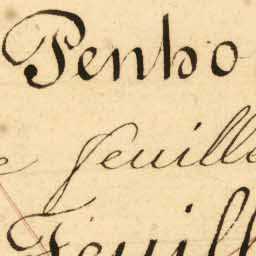 Penho
e feuille
Feuill